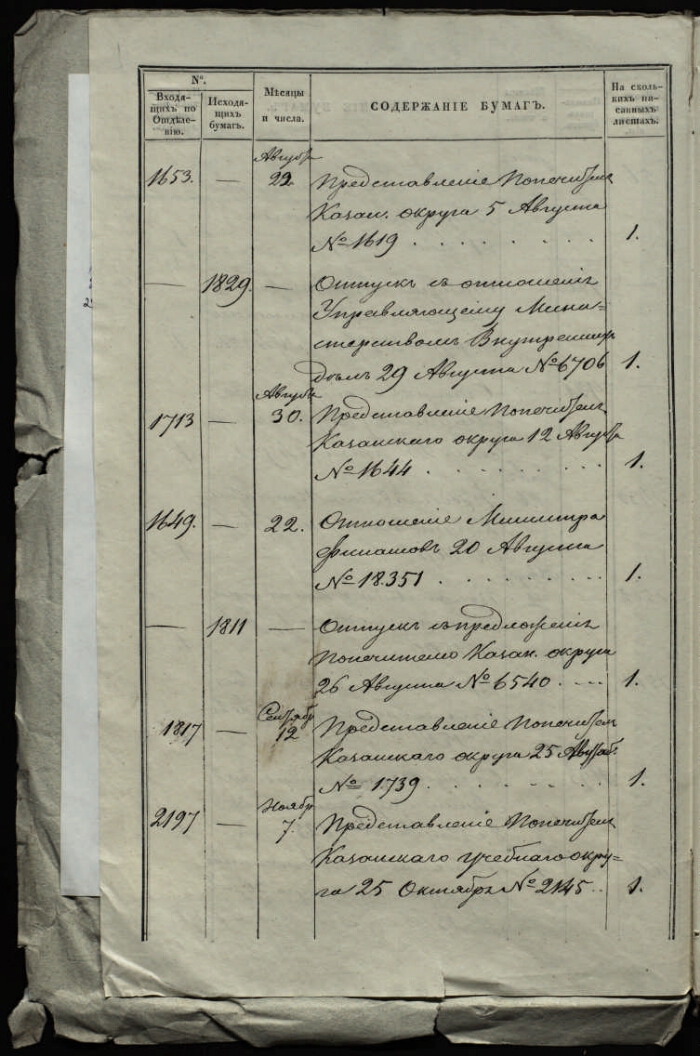 №.
Входя-
щихъ по
Отдѣле-
нію.
Исходя-
щихъ
бумагъ.
Мѣсяцы
и числа.
СОДЕРЖАНІЕ БУМАГЪ.
На сколь-
кихъ пи-
санныхъ
листахъ.
Августа
1653. — 22. Представленіе Попечителя
Казан. округа 5 Августа
№ 1619 . . . . . . . 1.
— 1829. — Отпускъ съ отношенія
Управляющему Мини-
стерствомъ Внутреннихъ
дѣлъ 29 Августа № 6706 1.
Августа
1713 — 30. Представленіе Попечителя
Казанскаго округа 12 Августа
№ 1644 . . . . . . . 1.
1649. — 22. Отношеніе Министра
Финансовъ 20 Августа
№ 18.351 . . . . . . . 1.
— 1811 — Отпускъ съ предложенія
Попечителю Казан. округа
26 Августа № 6540 . . . . 1.
Сентября
1817 — 12 Представленіе Попечителя
Казанскаго округа 25 Августа
№ 1739 . . . . . . . 1.
Ноября
2197 — 7. Представленіе Попечителя
Казанскаго учебнаго окру-
га 25 Октября № 2145 . . 1.